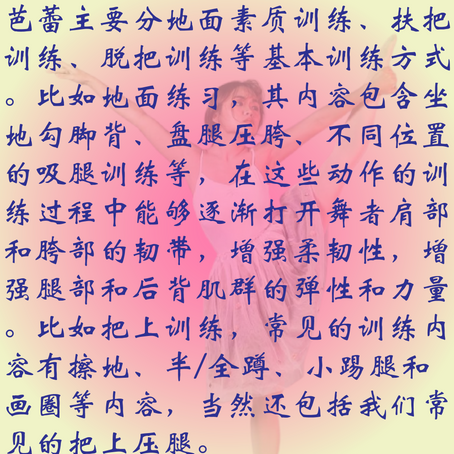 芭蕾主要分地面素质训练、扶把
训练、脱把训练等基本训练方式
。比如地面练习，其内容包含坐
地勾脚背、盘腿压胯、不同位置
的吸腿训练等，在这些动作的训
练过程中能够逐渐打开舞者肩部
和胯部的韧带，增强柔韧性，增
强腿部和后背肌群的弹性和力量
。比如把上训练，常见的训练内
容有擦地、半/全蹲、小踢腿和
画圈等内容，当然还包括我们常
见的把上压腿。